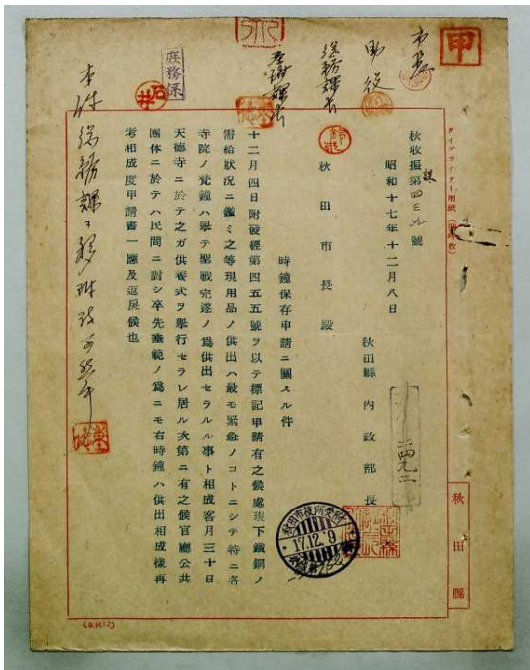 甲
市長
助役
総務課長
庶務係
石井
鈴木
タイプライター用紙
秋收振第四三九號
昭和十七年十二月八日
秋田縣內政部長
秋田市長殿
時鐘保存申請ニ關スル件
十二月四日附發經第四五五號ヲ以テ標記申請有之候處現下鐵銅ノ
需給狀況ニ鑑ミ之等現用品ノ供出ハ最モ緊急ノコトニシテ特ニ各
寺院ノ梵鐘ハ擧テ聖戰完遂ノ爲供出セラルル事ト相成客月三十日
天德寺ニ於テ之ガ供養式ヲ擧行セラレ居ル次第ニ有之候官廳公共
團体ニ於テハ民間ニ對シ卒先垂範ノ爲ニモ右時鐘ハ供出相成樣再
考相成度申請書一應及返戾候也
二四九二
秋田市役所受付
17.12.9
秋田縣